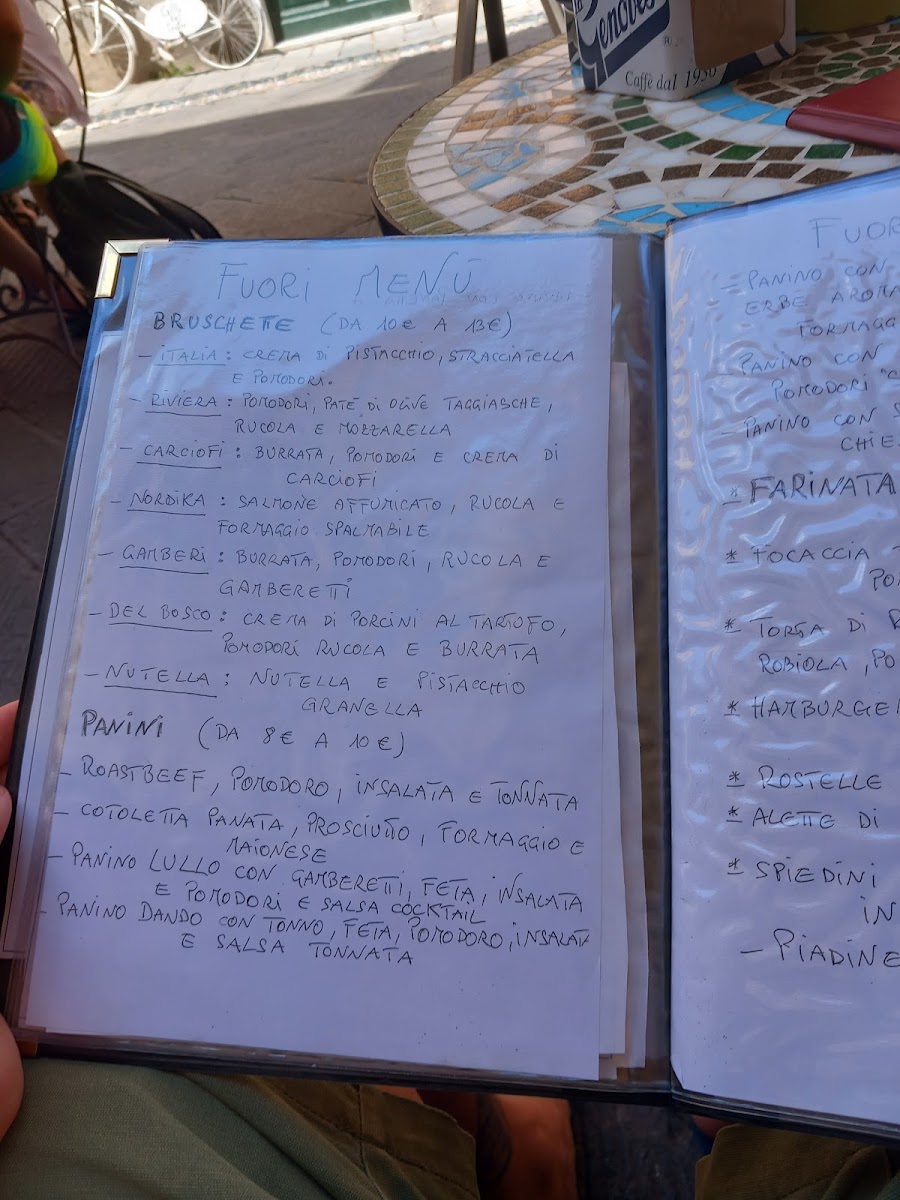 Genovese
Caffè dal 1930
FUORI MENÙ
BRUSCHETTE (DA 10€ A 13€)
- ITALIA: CREMA DI PISTACCHIO, STRACCIATELLA
E POMODORI.
- RIVIERA: POMODORI, PATÈ DI OLIVE TAGGIASCHE,
RUCOLA E MOZZARELLA
- CARCIOFI: BURRATA, POMODORI E CREMA DI
CARCIOFI
- NORDIKA: SALMONE AFFUMICATO, RUCOLA E
FORMAGGIO SPALMABILE
- GAMBERI: BURRATA, POMODORI, RUCOLA E
GAMBERETTI
- DEL BOSCO: CREMA DI PORCINI AL TARTUFO,
POMODORI RUCOLA E BURRATA
- NUTELLA: NUTELLA E PISTACCHIO
GRANELLA
PANINI (DA 8€ A 10€)
- ROASTBEEF, POMODORO, INSALATA E TONNATA
- COTOLETTA PANATA, PROSCIUTTO, FORMAGGIO E
MAIONESE
- PANINO LULLO CON GAMBERETTI, FETA, INSALATA
E POMODORI E SALSA COCKTAIL
- PANINO DANDO CON TONNO, FETA, POMODORO, INSALATA
E SALSA TONNATA
FUOR
- PANINO CON
ERBE AROMA
FORMAGG
- PANINO CON
POMODORI
- PANINO CON
CHIE
* FARINATA
* FOCACCIA
PO
* TORTA DI
ROBIOLA, PO
* HAMBURGE
* ROSTELLE
* ALETTE DI
* SPIEDINI
IN
- PIADINE